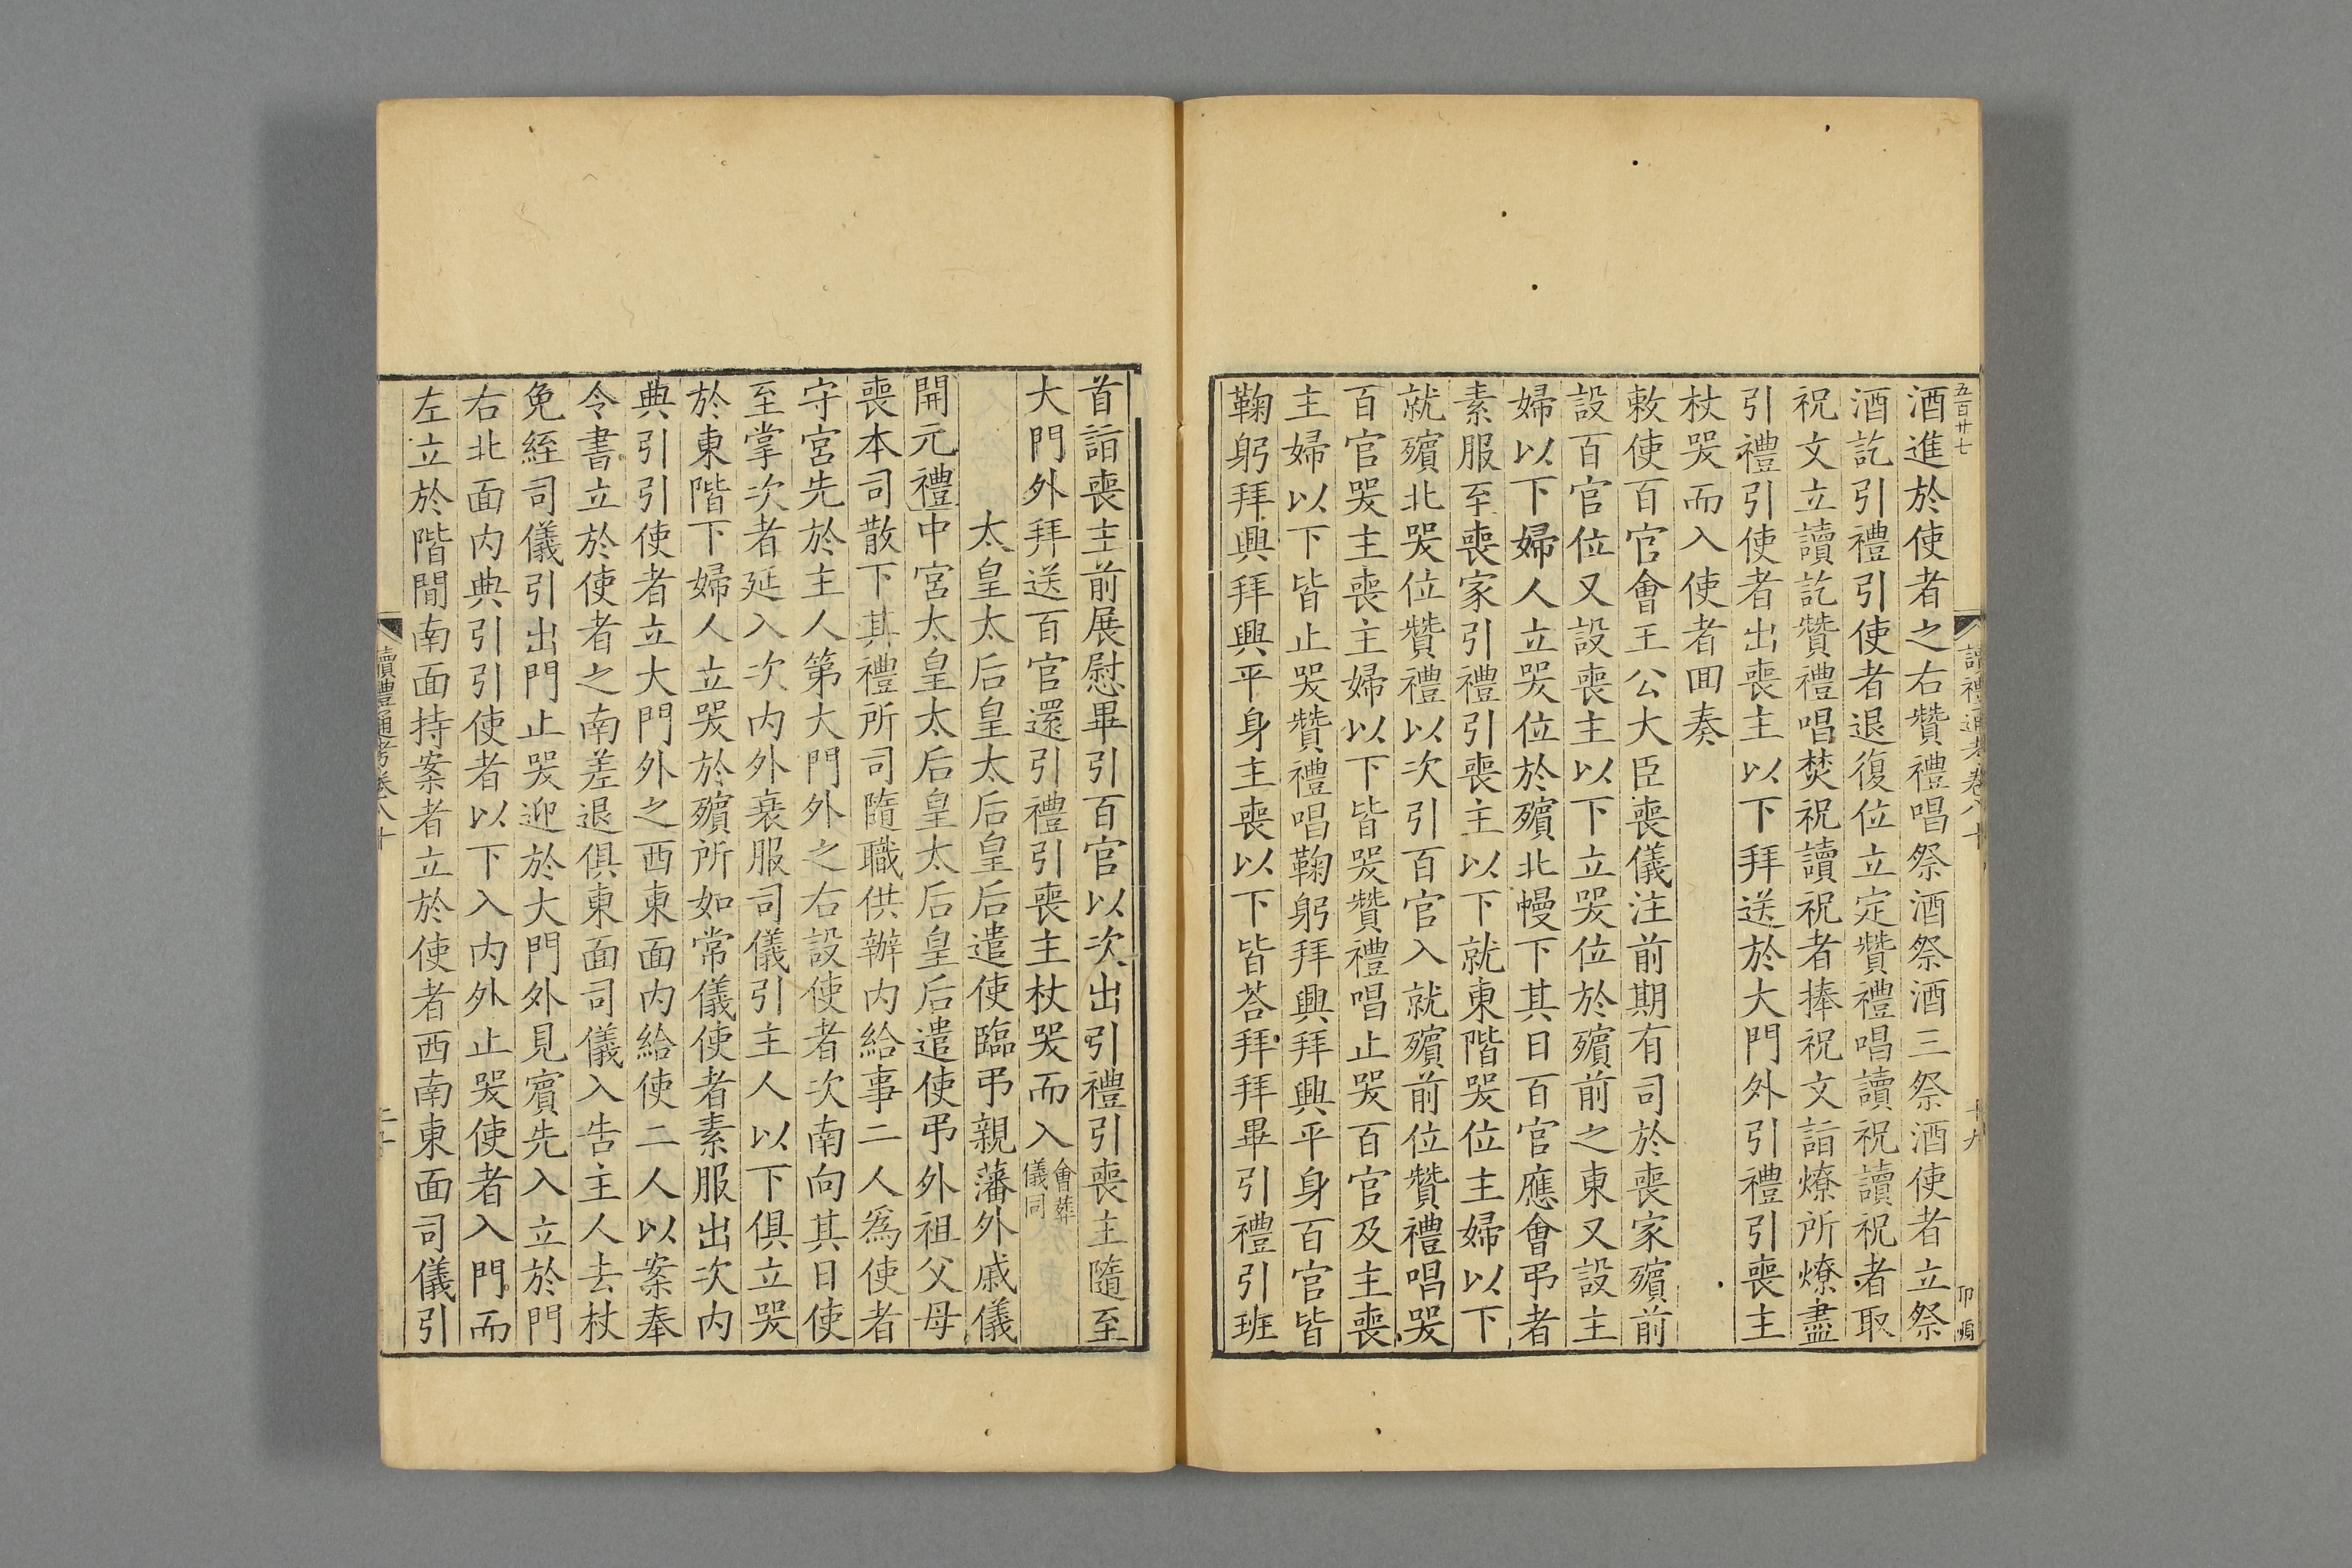 五百廿七
讀禮通考卷八十
十九
酒進於使者之右贊禮唱祭酒祭酒三祭酒使者立祭
酒訖引禮引使者退復位立定贊禮唱讀祝讀祝者取
祝文立讀訖贊禮唱焚祝讀祝者捧祝文詣燎所燎盡
引禮引使者出喪主以下拜送於大門外引禮引喪主
杖哭而入使者回奏
敕使百官會王公大臣喪儀注前期有司於喪家殯前
設百官位又設喪主以下立哭位於殯前之東又設主
婦以下婦人立哭位於殯北幔下其日百官應會弔者
素服至喪家引禮引喪主以下就東階哭位主婦以下
就殯北哭位贊禮以次引百官入就殯前位贊禮唱哭
百官哭主喪主婦以下皆哭贊禮唱止哭百官及主喪
主婦以下皆止哭贊禮唱鞠躬拜興拜興平身百官皆
鞠躬拜興拜興平身主喪以下皆荅拜拜畢引禮引班
首詣喪主前展慰畢引百官以次出引禮引喪主隨至
大門外拜送百官還引禮引喪主杖哭而入會葬儀同
太皇太后皇太后皇后遣使臨弔親藩外戚儀
開元禮中宮太皇太后皇太后皇后遣使弔外祖父母
喪本司散下其禮所司隨職供辦內給事二人爲使者
守宮先於主人第大門外之右設使者次南向其日使
至掌次者延入次內外衰服司儀引主人以下俱立哭
於東階下婦人立哭於殯所如常儀使者素服出次內
典引引使者立大門外之西東面內給使二人以案奉
令書立於使者之南差退俱東面司儀入告主人去杖
免絰司儀引出門止哭迎於大門外見賓先入立於門
右北面內典引引使者以下入內外止哭使者入門而
左立於階間南面持案者立於使者西南東面司儀引
讀禮通考卷八十